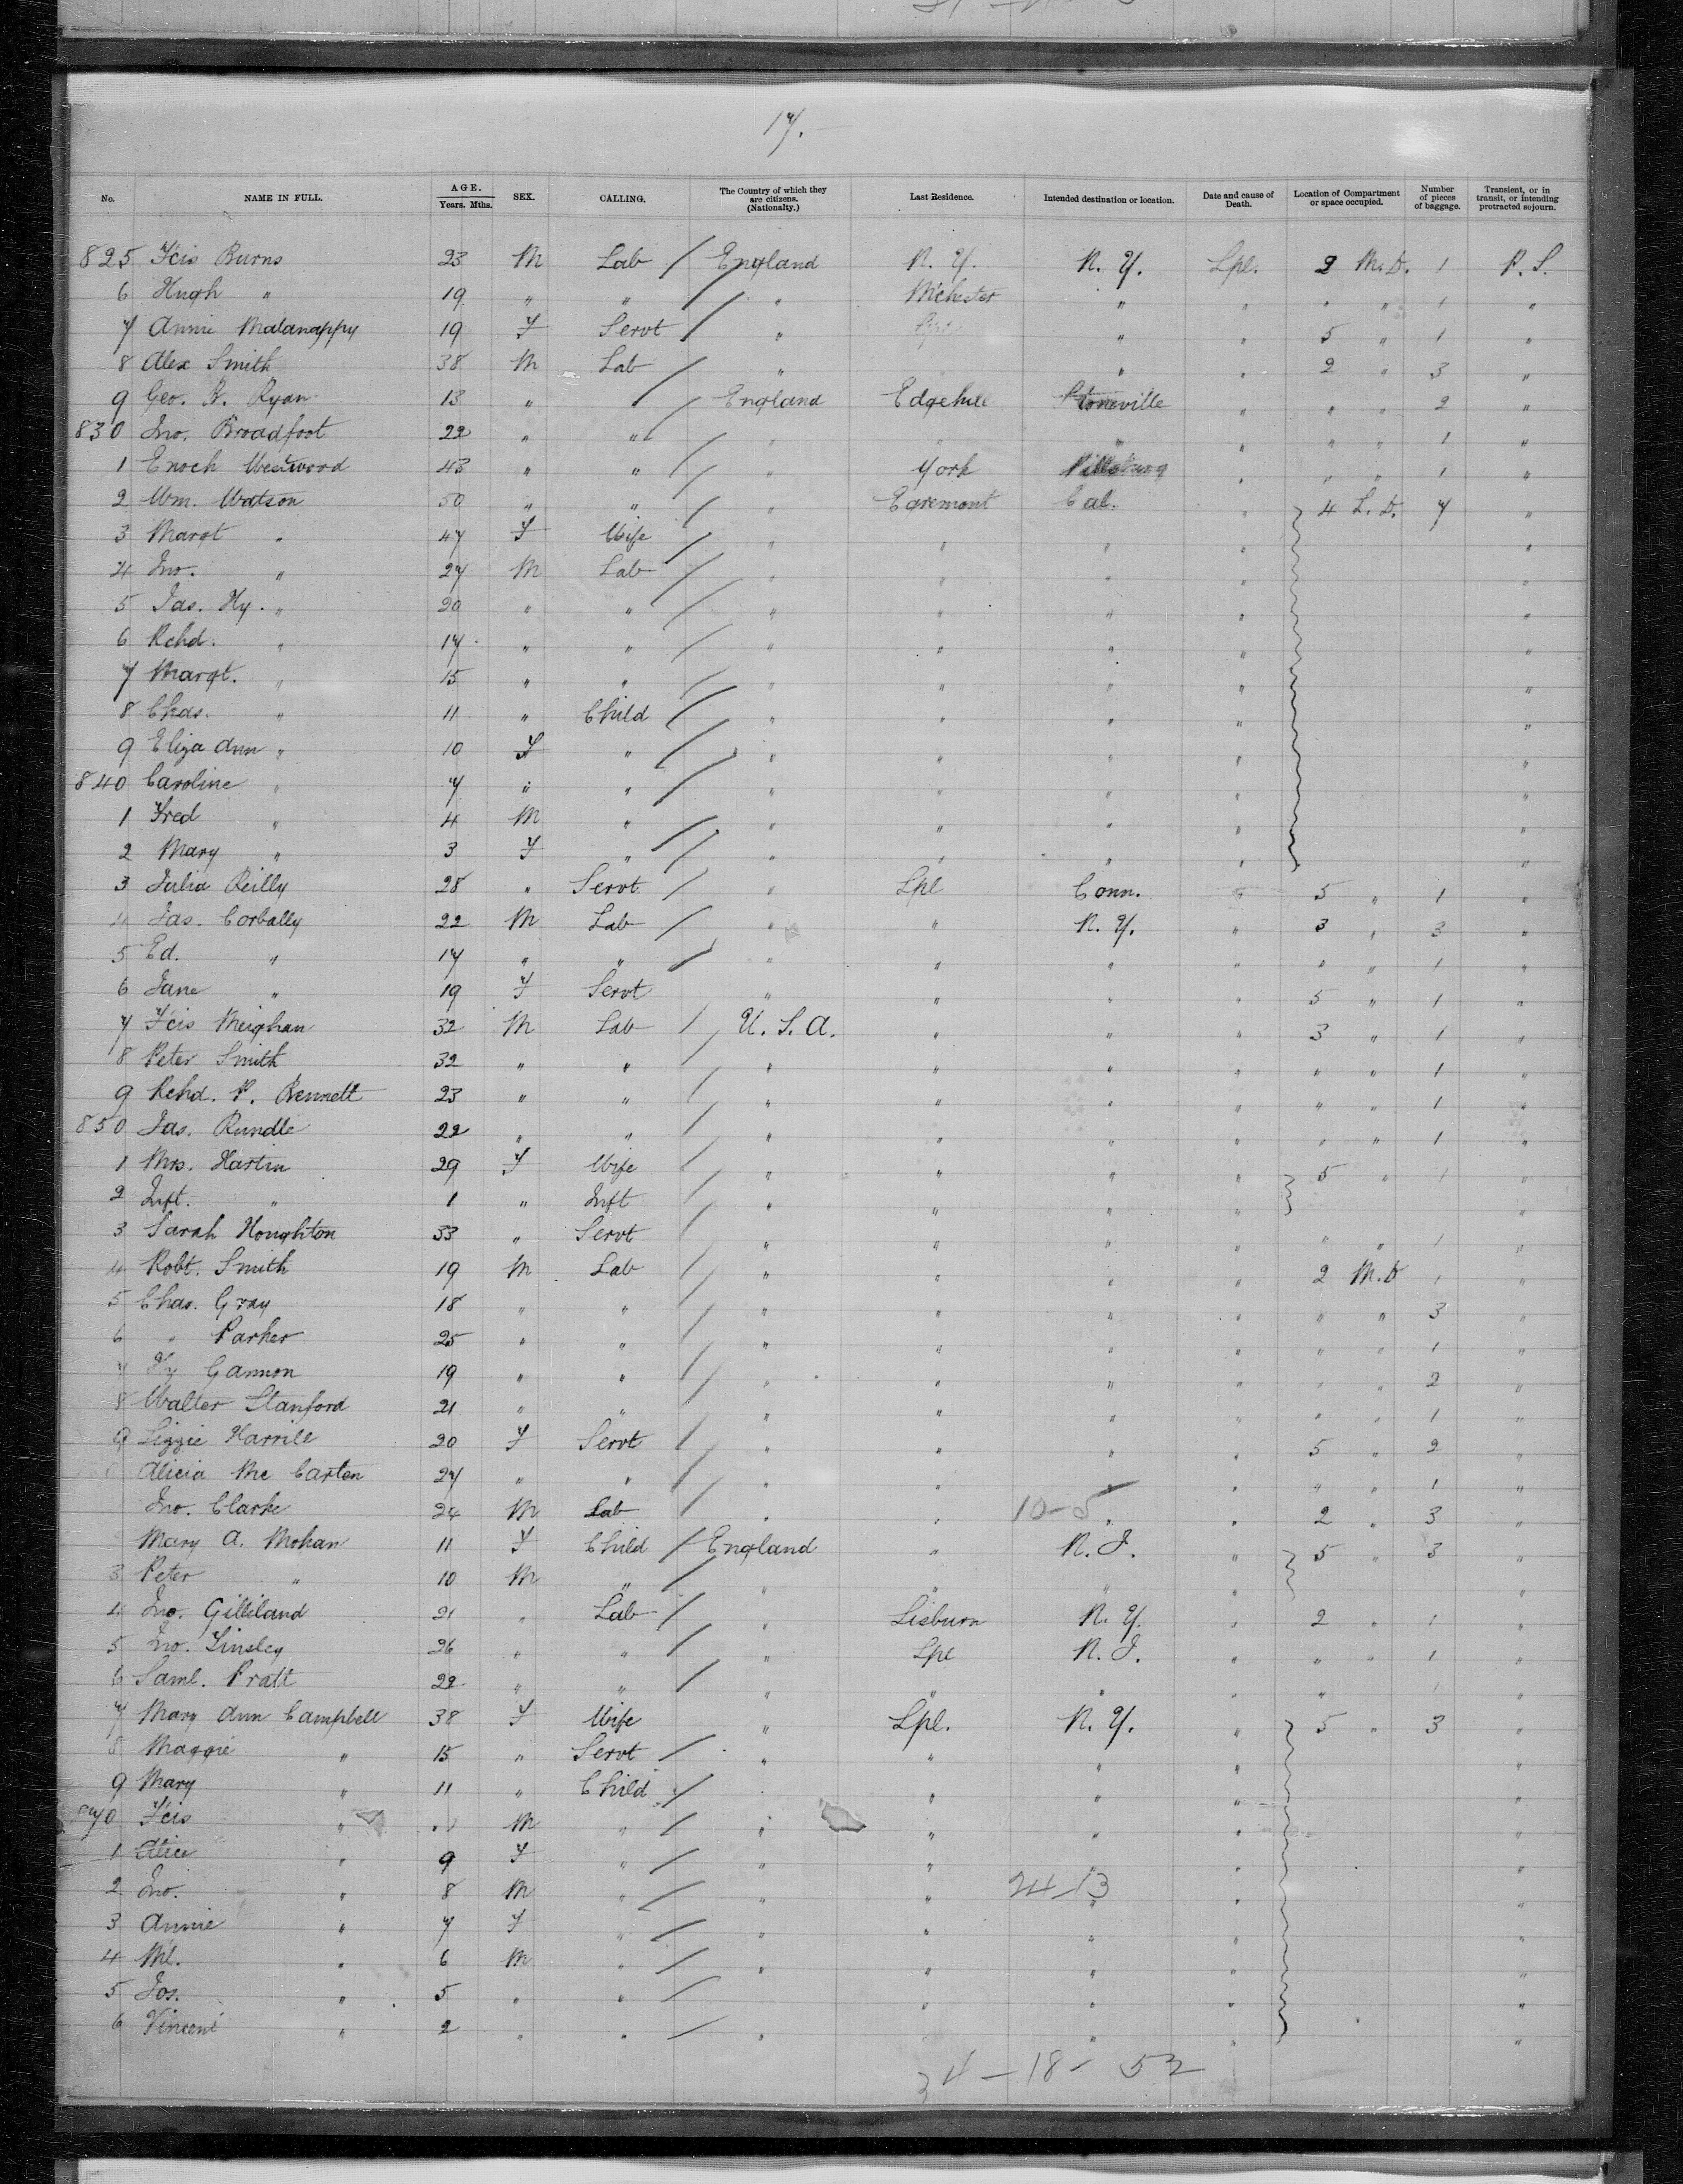 17.
No. NAME IN FULL. AGE. Years. Mths. SEX. CALLING. The Country of which they are citizens. (Nationalty.) Last Residence. Intended destination or location. Date and cause of Death. Location of Compartment or space occupied. Number of pieces of baggage. Transient, or in transit, or intending protracted sojourn.
825 Fcis Burns 23 M Lab / England N. Y. N. Y. Lpl. 2 M. D. 1 P. S.
6 Hugh " 19 " " / " M'chester " " " " 1 "
7 Annie Malanappy 19 F Servt / " " " 5 " 1 "
8 Alex Smith 38 M Lab / " " " 2 " 3 "
9 Geo. R. Ryan 13 " " / England Edgehill Stoneville " " " 2 "
830 Jno. Broadfoot 22 " " / " " " " " " 1 "
1 Enoch Westwood 43 " " / " York Pittsburg " " " 1 "
2 Wm. Watson 50 " " / " Egremont Cal. " 4 L. D. 7 "
3 Margt " 47 F Wife / " " " " "
4 Jno. " 27 M Lab / " " " " "
5 Jas. Hy. " 20 " " / " " " " "
6 Rchd. " 17 " " / " " " " "
7 Margt. " 15 " " / " " " " "
8 Chas. " 11 " Child / " " " " "
9 Eliza Ann " 10 F " / " " " " "
840 Caroline " 7 " " / " " " " "
1 Fred " 4 M " / " " " " "
2 Mary " 3 F " / " " " " "
3 Julia Reilly 28 " Servt / " Lpl Conn. " 5 " 1 "
4 Jas. Corbally 22 M Lab / " " N. Y. " 3 " 3 "
5 Ed. " 17 " " / " " " " " " 1 "
6 Jane " 19 F Servt " " " " 5 " 1 "
7 Fcis Meighan 32 M Lab / U. S. A. " " " 3 " 1 "
8 Peter Smith 32 " " / " " " " " " 1 "
9 Rchd. P. Bennett 23 " " / " " " " " " 1 "
850 Jas. Rundle 22 " " / " " " " " " 1 "
1 Mrs. Hartin 29 F Wife / " " " " 5 " 1 "
2 Inft. " 1 " Inft / " " " " "
3 Sarah Houghton 33 " Servt / " " " " " " 1 "
4 Robt. Smith 19 M Lab / " " " " 2 M. D 1 "
5 Chas. Gray 18 " " / " " " " " " 3 "
6 " Parker 25 " " / " " " " " " 1 "
7 Hy Gannon 19 " " / " " " " " " 2 "
8 Walter Stanford 21 " " / " " " " " " 1 "
9 Lizzie Harrile 20 F Servt / " " " " 5 " 2 "
Alicia Mc Carten 27 " " / " " " " " " 1 "
Jno. Clarke 24 M Lab / " " 10-5 " " 2 " 3 "
Mary A. Mohan 11 F Child / England " N. J. " 5 " 3 "
3 Peter " 10 M " / " " " " "
4 Jno. Gilliland 21 " Lab / " Lisburn N. Y. " 2 " 1 "
5 Jno. Tinsley 26 " " / " Lpl N. J. " " " 1 "
6 Saml. Pratt 22 " " / " " " " " 1 "
7 Mary Ann Campbell 38 F Wife " Lpl. N. Y. " 5 " 3 "
8 Maggie " 15 " Servt / " " " " "
9 Mary " 11 " Child / " " " "
870 Fcis " M " / " " " " "
1 Alice " 9 F " / " " " " "
2 Jno. " 8 M " / " " 24-13 " " "
3 Annie " 7 F " / " " " " "
4 Ml. " 6 M " / " " " " "
5 Jos. " 5 " " / " " " "
6 Vincent " 2 " " / " " " "
34-18-52